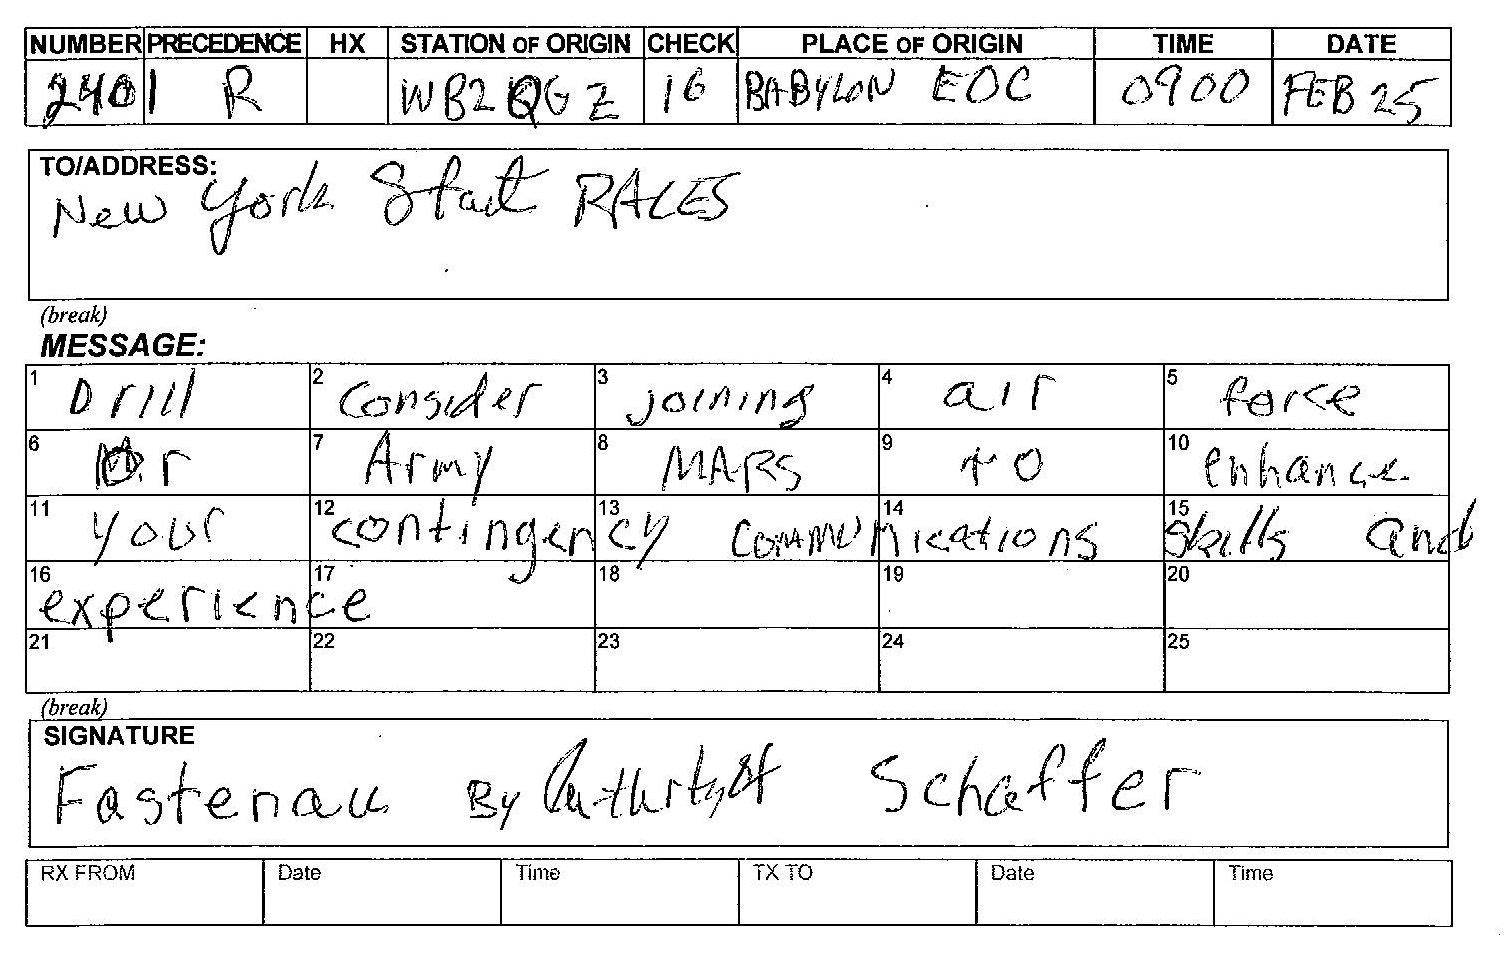 NUMBER PRECEDENCE HX STATION OF ORIGIN CHECK PLACE OF ORIGIN TIME DATE
2401 R WB2QGZ 16 BABYLON EOC 0900 FEB 25
TO/ADDRESS:
New York State RACES
(break)
MESSAGE:
1 Drill 2 consider 3 joining 4 air 5 force
6 or 7 Army 8 MARS 9 to 10 enhance
11 your 12 contingency 13 communications 14 15 skills and
16 experience 17 18 19 20
21 22 23 24 25
(break)
SIGNATURE
Fastenau By Authority of Schaffer
RX FROM Date Time TX TO Date Time